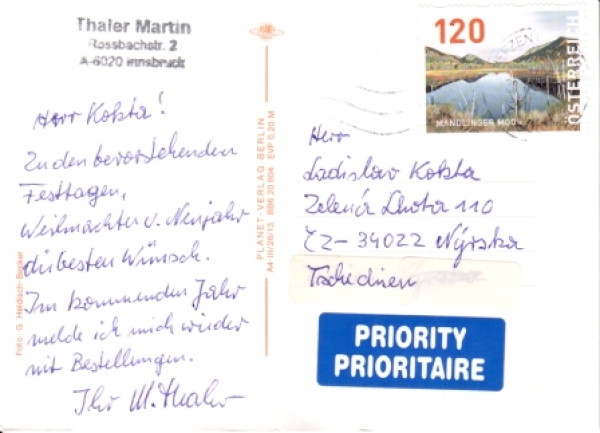 Thaler Martin
Rossbachstr. 2
A-6020 Innsbruck
Herr Kokta!
Zu den bevorstehenden
Festtagen,
Weihnachten u. Neujahr
die besten Wünsch.
Im kommenden Jahr
melde ich mich wieder
mit Bestellungen.
Ihr M. Thaler
Foto: G. Heidisch-Becker
PLANET-VERLAG BERLIN
A4-III/26/13 886 20 804 EVP 0,20 M
120
MANDLINGER MOOR
ÖSTERREICH
Herr
Ladislav Kokta
Zelená Lhota 110
CZ-34022 Nýrska
Tschechien
PRIORITY
PRIORITAIRE